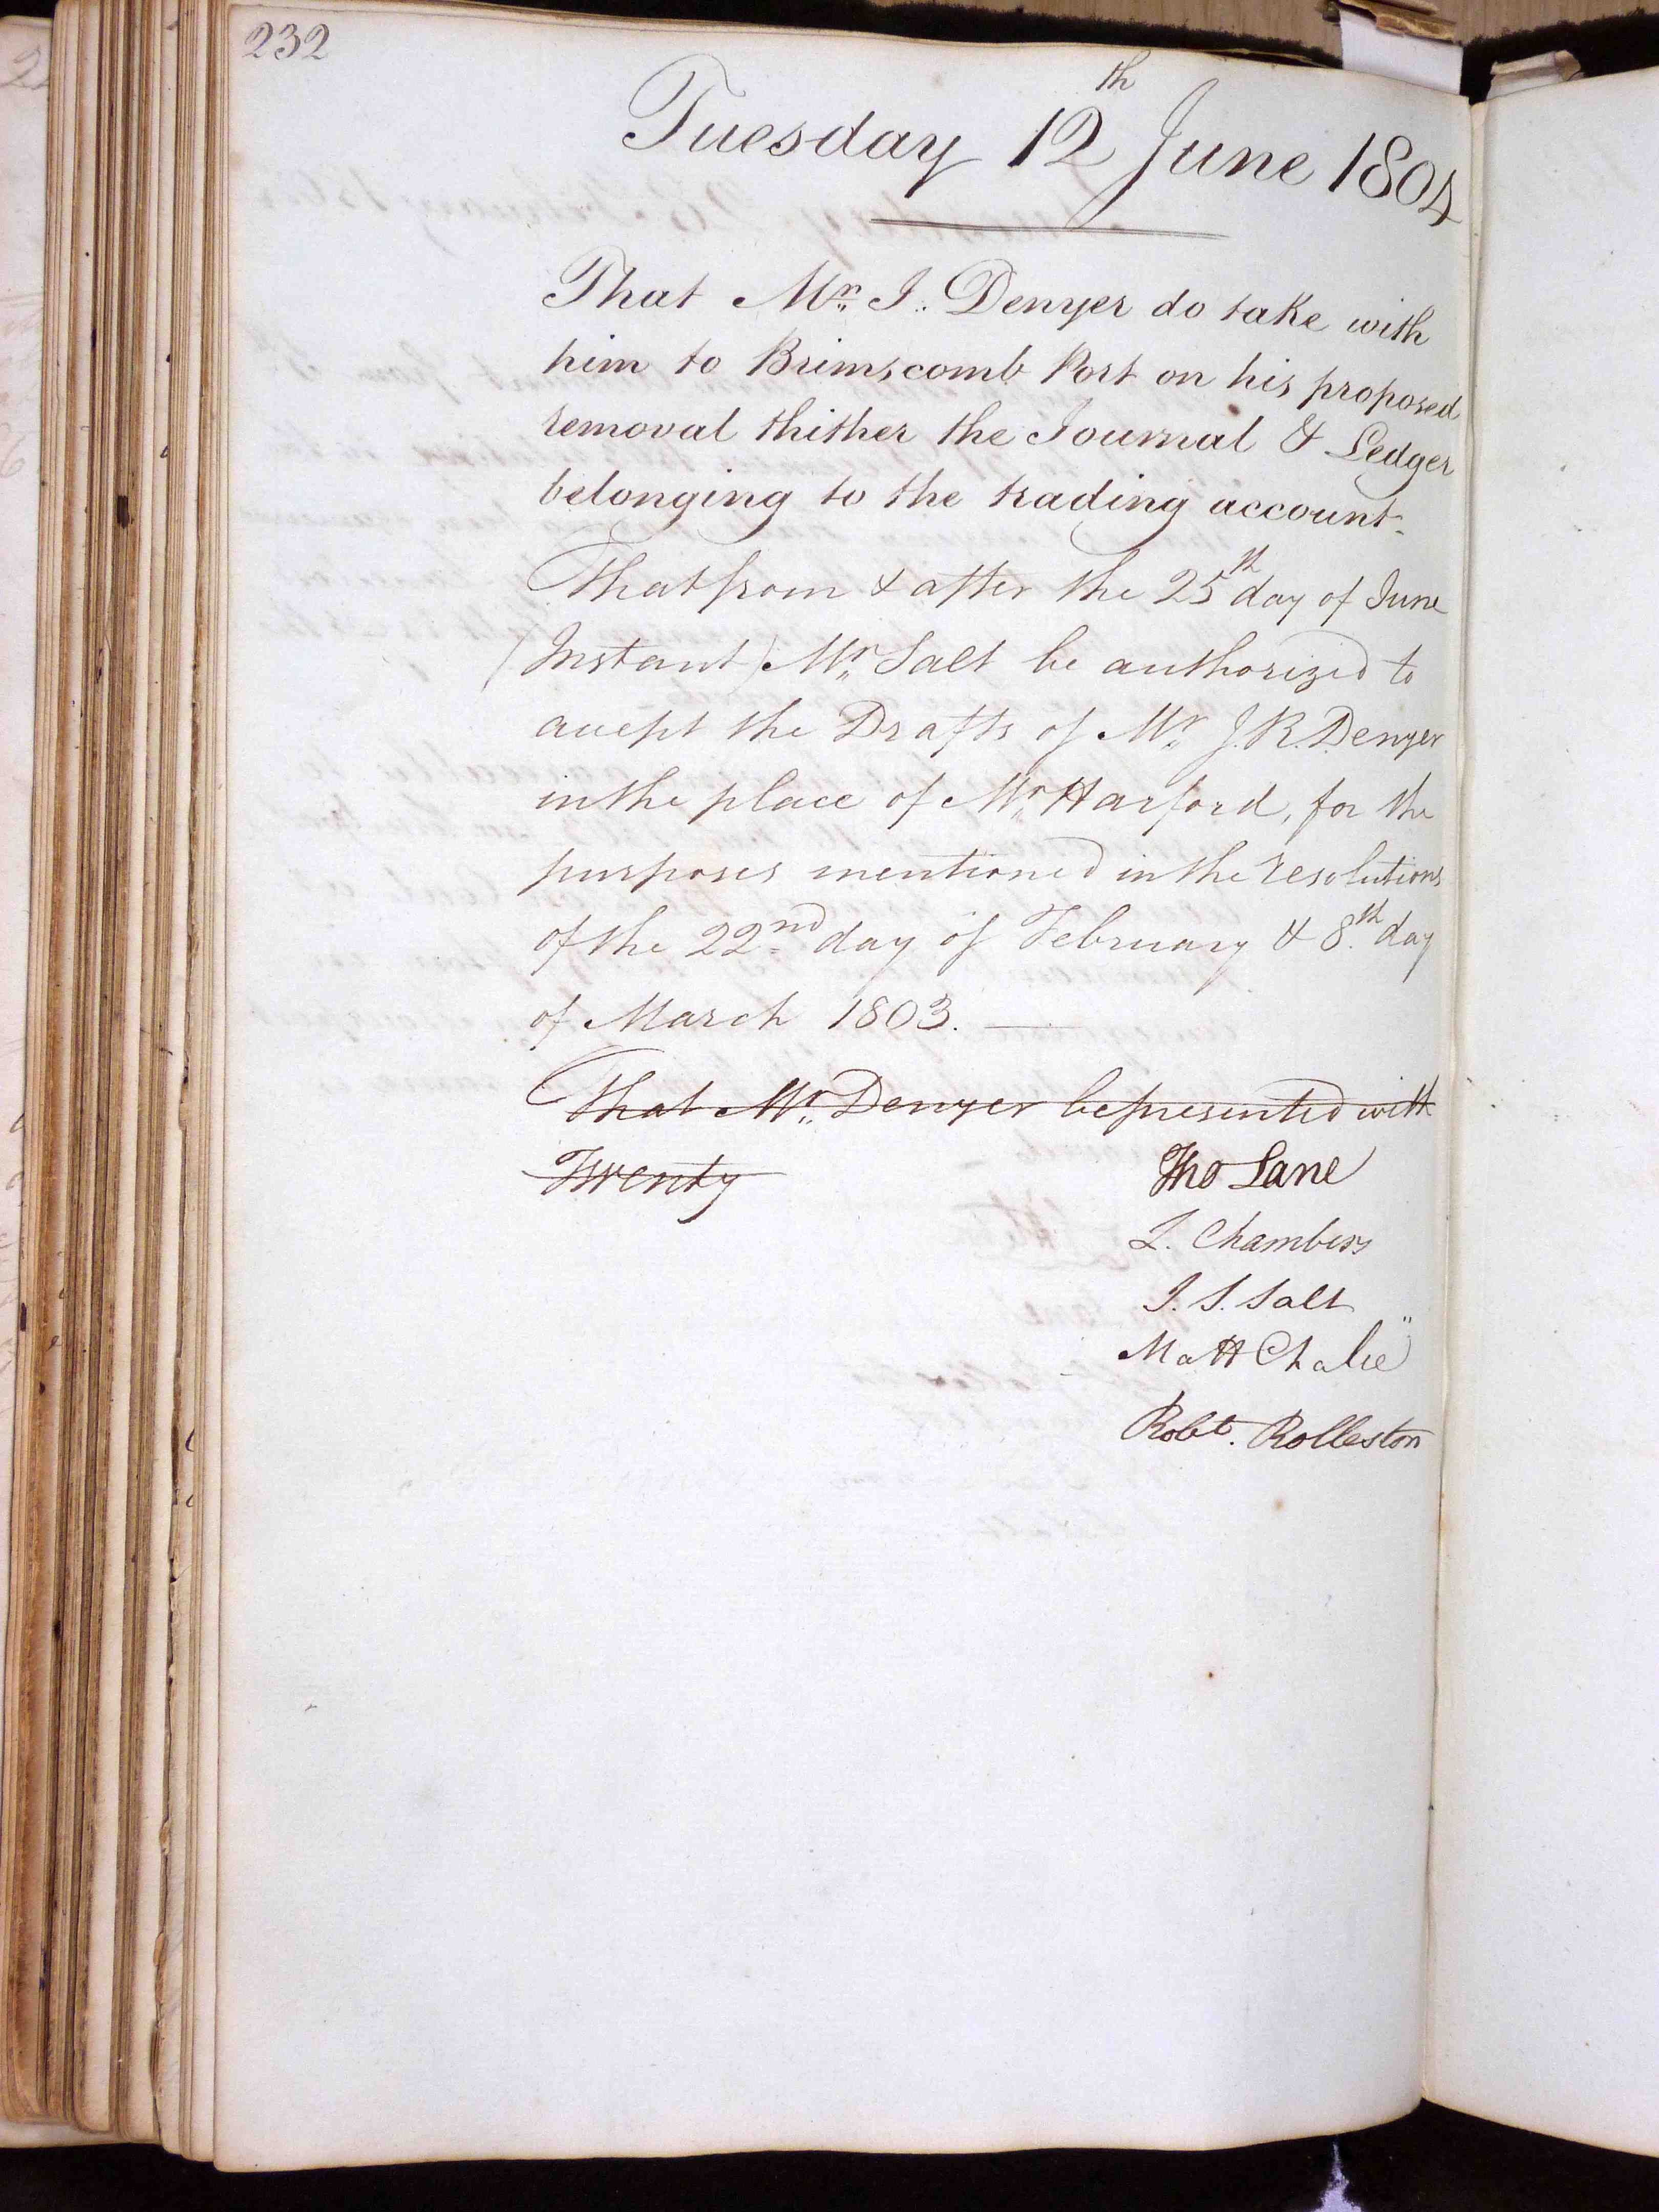 232
Tuesday 12th June 1804
That Mr. J. Denyer do take with
him to Brimscomb Port on his proposed
removal thither the Journal & Ledger
belonging to the trading account.
That from & after the 25th day of June
(Instant) Mr. Salt be authorized to
accept the Drafts of Mr. J. R. Denyer
in the place of Mr. Harford, for the
purposes mentioned in the resolutions
of the 22nd day of February & 8th day
of March 1803. —
That Mr. Denyer be presented with
Twenty
Tho Lane
L. Chambers
J. S. Salt
Matt Chalie
Robt. Rolleston